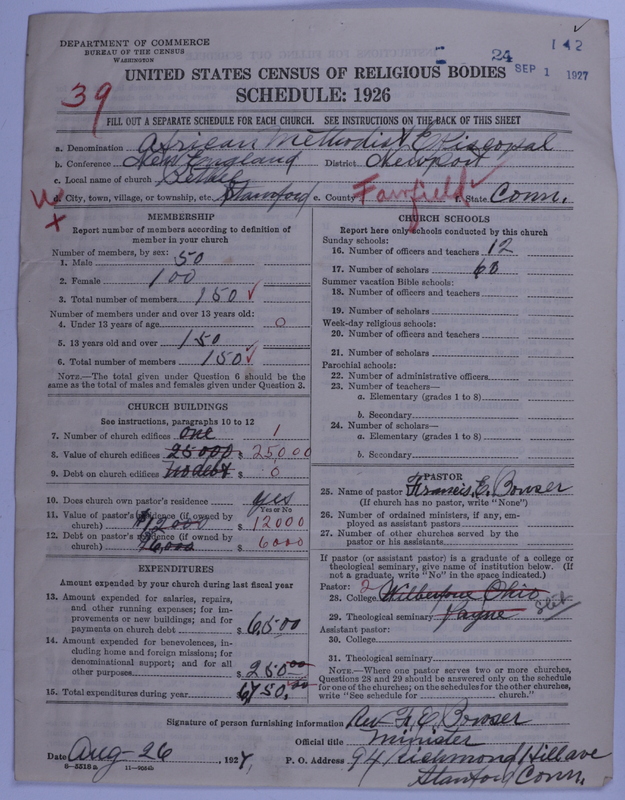 142
24
SEP 1 1927
DEPARTMENT OF COMMERCE
BUREAU OF THE CENSUS
WASHINGTON
UNITED STATES CENSUS OF RELIGIOUS BODIES
SCHEDULE: 1926
39
FILL OUT A SEPARATE SCHEDULE FOR EACH CHURCH. SEE INSTRUCTIONS ON THE BACK OF THIS SHEET
a. Denomination African Methodist Episcopal
b. Conference New England District Newport
c. Local name of church Bethel
d. City, town, village, or township, etc. Stamford e. County Fairfield f. State Conn.
MEMBERSHIP
Report number of members according to definition of
member in your church
Number of members, by sex:
1. Male 50
2. Female 100
3. Total number of members 150
Number of members under and over 13 years old:
4. Under 13 years of age 0
5. 13 years old and over 150
6. Total number of members 150
NOTE.—The total given under Question 6 should be the
same as the total of males and females given under Question 3.
CHURCH BUILDINGS
See instructions, paragraphs 10 to 12
7. Number of church edifices one 1
8. Value of church edifices 25,000 $ 25,000
9. Debt on church edifices no debt $ 0
10. Does church own pastor's residence yes
Yes or No
11. Value of pastor's residence (if owned by
church) $12,000 $ 12000
12. Debt on pastor's residence (if owned by
church) $6,000 $ 6000
EXPENDITURES
Amount expended by your church during last fiscal year
13. Amount expended for salaries, repairs,
and other running expenses; for im-
provements or new buildings; and for
payments on church debt $ 6500
14. Amount expended for benevolences, in-
cluding home and foreign missions; for
denominational support; and for all
other purposes $ 250.00
15. Total expenditures during year $ 6,750.00
CHURCH SCHOOLS
Report here only schools conducted by this church
Sunday schools:
16. Number of officers and teachers 12
17. Number of scholars 60
Summer vacation Bible schools:
18. Number of officers and teachers
19. Number of scholars
Week-day religious schools:
20. Number of officers and teachers
21. Number of scholars
Parochial schools:
22. Number of administrative officers
23. Number of teachers—
a. Elementary (grades 1 to 8)
b. Secondary
24. Number of scholars—
a. Elementary (grades 1 to 8)
b. Secondary
PASTOR
25. Name of pastor Francis E. Bowser
(If church has no pastor, write "None")
26. Number of ordained ministers, if any, em-
ployed as assistant pastors
27. Number of other churches served by the
pastor or his assistants
If pastor (or assistant pastor) is a graduate of a college or
theological seminary, give name of institution below. (If
not a graduate, write "No" in the space indicated.)
Pastor: 2
28. College Wilberforce Ohio
29. Theological seminary Payne stet
Assistant pastor:
30. College
31. Theological seminary
NOTE.—Where one pastor serves two or more churches,
Questions 28 and 29 should be answered only on the schedule
for one of the churches; on the schedules for the other churches,
write "See schedule for church."
Signature of person furnishing information Rev F. E. Bowser
Official title Minister
Date Aug-26, 1927. P. O. Address 94 Richmond Hill ave
8-3318a 11-9554b Stamford Conn.